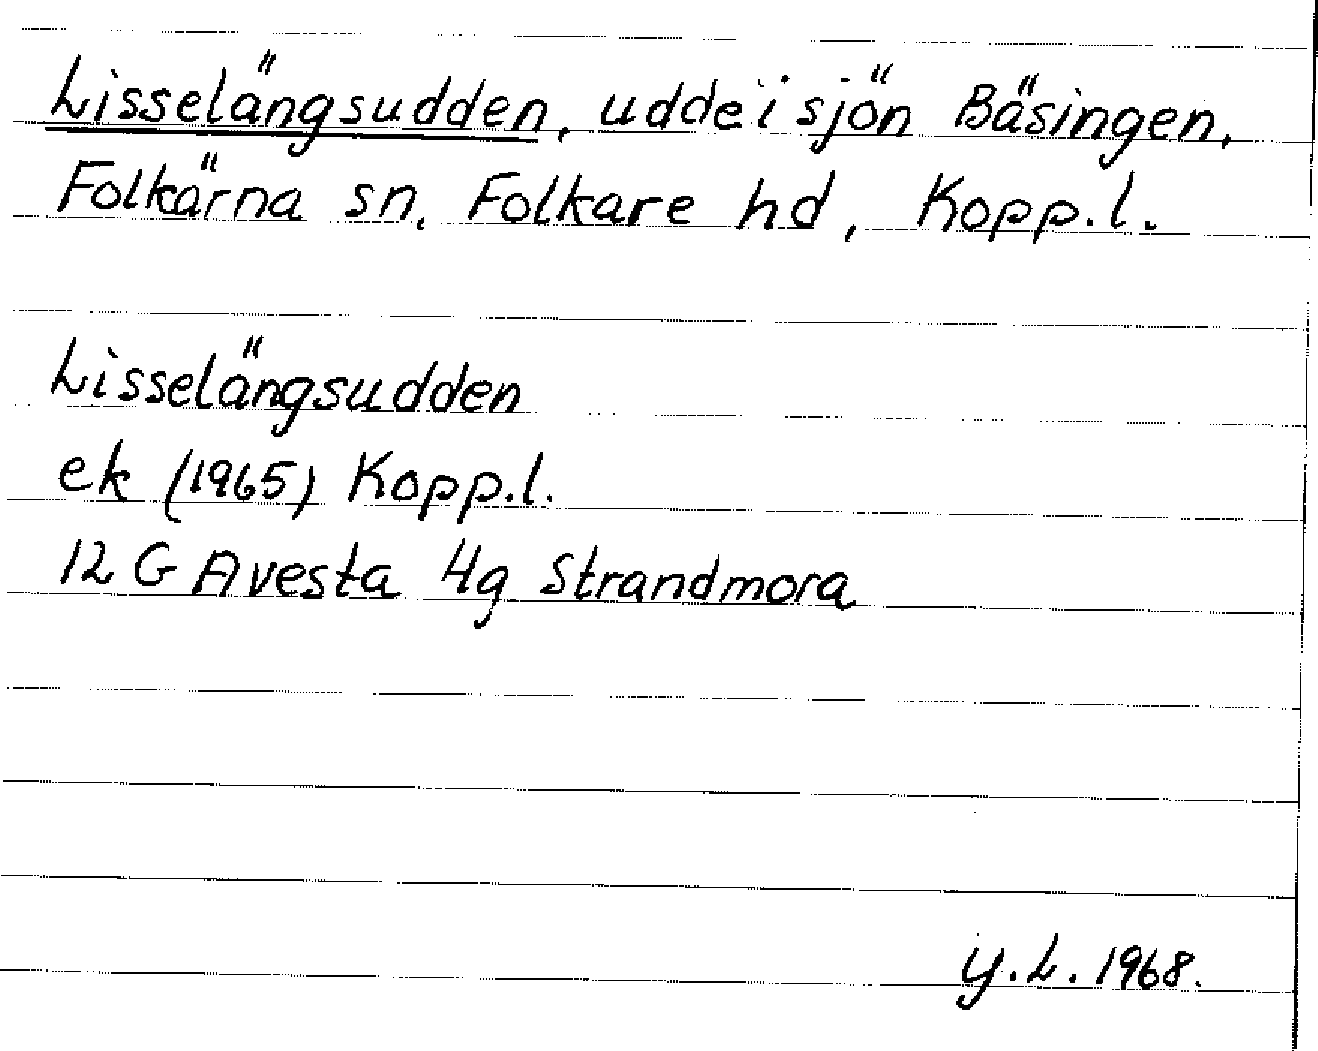 Lisselängsudden, udde i sjön Bäsingen,
Folkärna sn. Folkare hd, Kopp.l.
Lisselängsudden
ek (1965) Kopp.l.
12 G Avesta 4g Strandmora
Y.L. 1968.